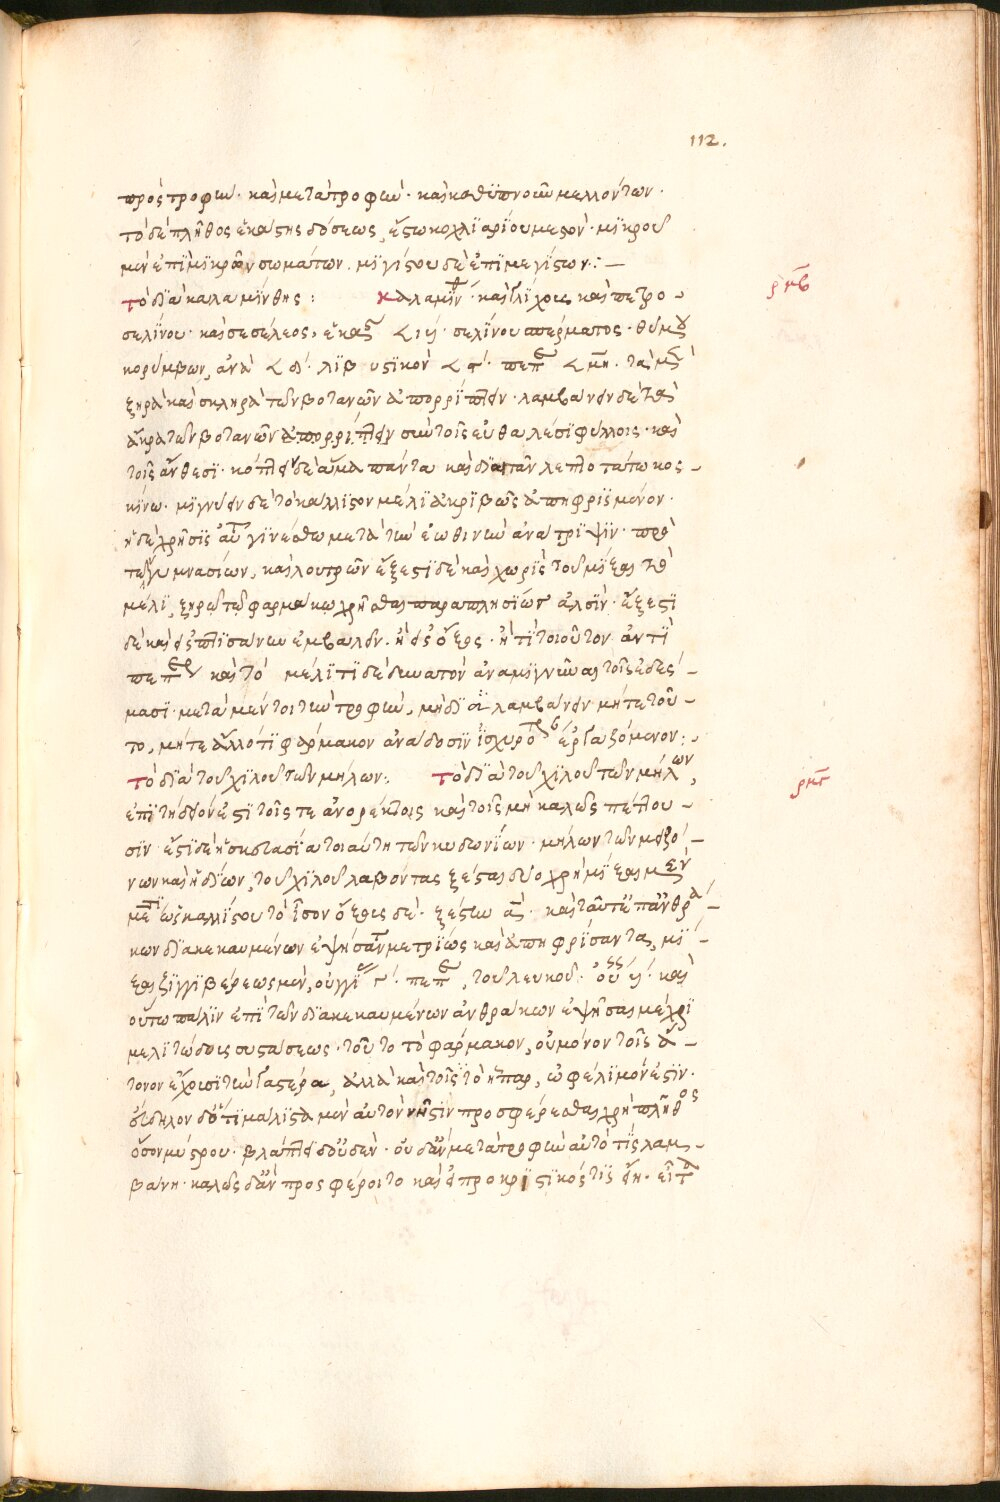 112.
πρὸς τροφὴν· καὶ μετὰ τροφὴν· καὶ καθϋπνοῦν μελλόντων·
τὸ δὲ πλῆθος ἑκάστης δόσεως, ἔστω κοχλϊαρίου μεστὸν· μϊκροῦ
μὲν ἐπὶ μϊκρῶν σωμάτων. μεγίστου δὲ ἐπὶ μεγίστων:—
τὸ δϊὰ καλαμίνθης: καλαμίν καὶ γλίχους καὶ πετρο-
ρκβ
σελίνου· καὶ σεσέλεος, ἑκάστ < ιη· σελίνου σπέρματος· θύμου
κορύμβων, ἀνὰ < δ· λϊβυστϊκὸν < ϛ· πεπ < μη. τὰ μὲν
ξηρὰ καὶ σκληρὰ τῶν βοτανῶν ἀπορρίπτειν· λαμβάνειν δὲ τὰ
ἄκρα τῶν βοτανῶν ἀπορρίπτειν σὺν τοῖς εὐθαλέσϊ φύλλοις· καὶ
τοῖς ἄνθεσι· κόπτειν δὲ ἅμα πάντα καὶ δϊαττᾶν λεπτοτάτω κος-
κίνω. μϊγνύειν δὲ τὸ κάλλϊστον μέλϊ ἀκρϊβῶς ἀπηφρϊσμένον·
ἡ δὲ χρῆσϊς αὐτ γϊνέσθω μετὰ τὴν ἑωθινὴν ἀνάτρϊψϊν· πρὸ
τῶν γυμνασίων, καὶ λουτρῶν ἔξεστϊ δὲ καὶ χωρὶς τοῦ μῖξαι τὸ
μέλϊ, ξηρῶ τῶ φαρμάκω χρῆσθαι παραπλησίως ἁλσϊν· ἔξεστϊ
δὲ καὶ εἰς πτϊσάνην ἐμβαλεῖν. ἢ εἰς ὄξος· ἤ τι τοιοῦτον ἀντὶ
πεπ καὶ τὸ μέλϊ τϊ δὲ δυνατὸν ἀναμϊγνῦναι τοῖς ἐδέσ-
μασϊ· μετὰ μέντοι τὴν τροφὴν, μηδϊ λαμβάνειν μήτε τοῦ-
το, μήτε ἄλλό τϊ φάρμακον ἀνάδοσϊν ἰσχυρο ἐργαζόμενον:
τὸ δϊὰ τοῦ χϊλοῦ τῶν μήλων: τὸ δϊὰ τοῦ χϊλοῦ τῶν μήλων,
ρκγ
ἐπϊτήδειόν ἐστϊ τοῖς τε ἀνορέκτοις καὶ τοῖς μὴ καλῶς πέπτου-
σϊν· ἔστϊ δὲ ἡ σκευασία τοιαύτη τῶν κυδωνίων· μήλων τῶν μειζό-
νων καὶ ἡδϊων, τοῦ χϊλοῦ λαβόντας ξέστας δύο χρὴ μῖξαι μὲν
μέλιτος καλλίστου τὸ ἴσον ὄξους δὲ· ξέστην α. καὶ ταῦτ ἐπ᾽ ἀνθρά-
κων δϊακεκαυμένων ἑψήσαντ μετρίως καὶ ἀπηφρίσαντας, μῖ-
ξαι ζιγγιβέρεως μὲν, οὐγγϊ γ· πεπ, τοῦ λευκοῦ· οὐ η· καὶ
οὕτω πάλϊν ἐπὶ τῶν δϊακεκαυμένων ἀνθράκων ἑψῆσαι μέχρϊ
μελιτώδους συστάσεως· τοῦτο τὸ φάρμακον, οὐ μόνον τοῖς ἄ-
τονον ἔχουσϊ τὴν γαστέρα, ἀλλὰ καὶ τοῖς τὸ ἧπαρ, ὠφέλιμόν ἐστϊν·
εὔδηλον δ᾽ ὅτϊ μάλϊστα μὲν αὐτὸν νῆστϊν προσφέρεσθαι χρὴ πλῆθος
ὅσον μύστρου· βλάπτει δ᾽ οὐδὲν· οὐδ᾽ ἂν μετὰ τροφὴν αὐτό τϊς λαμ-
βάνη· καλῶς δ᾽ ἂν προσφέροιτο καὶ εἰ προκρϊστϊκός τϊς εἴη· εἴτ